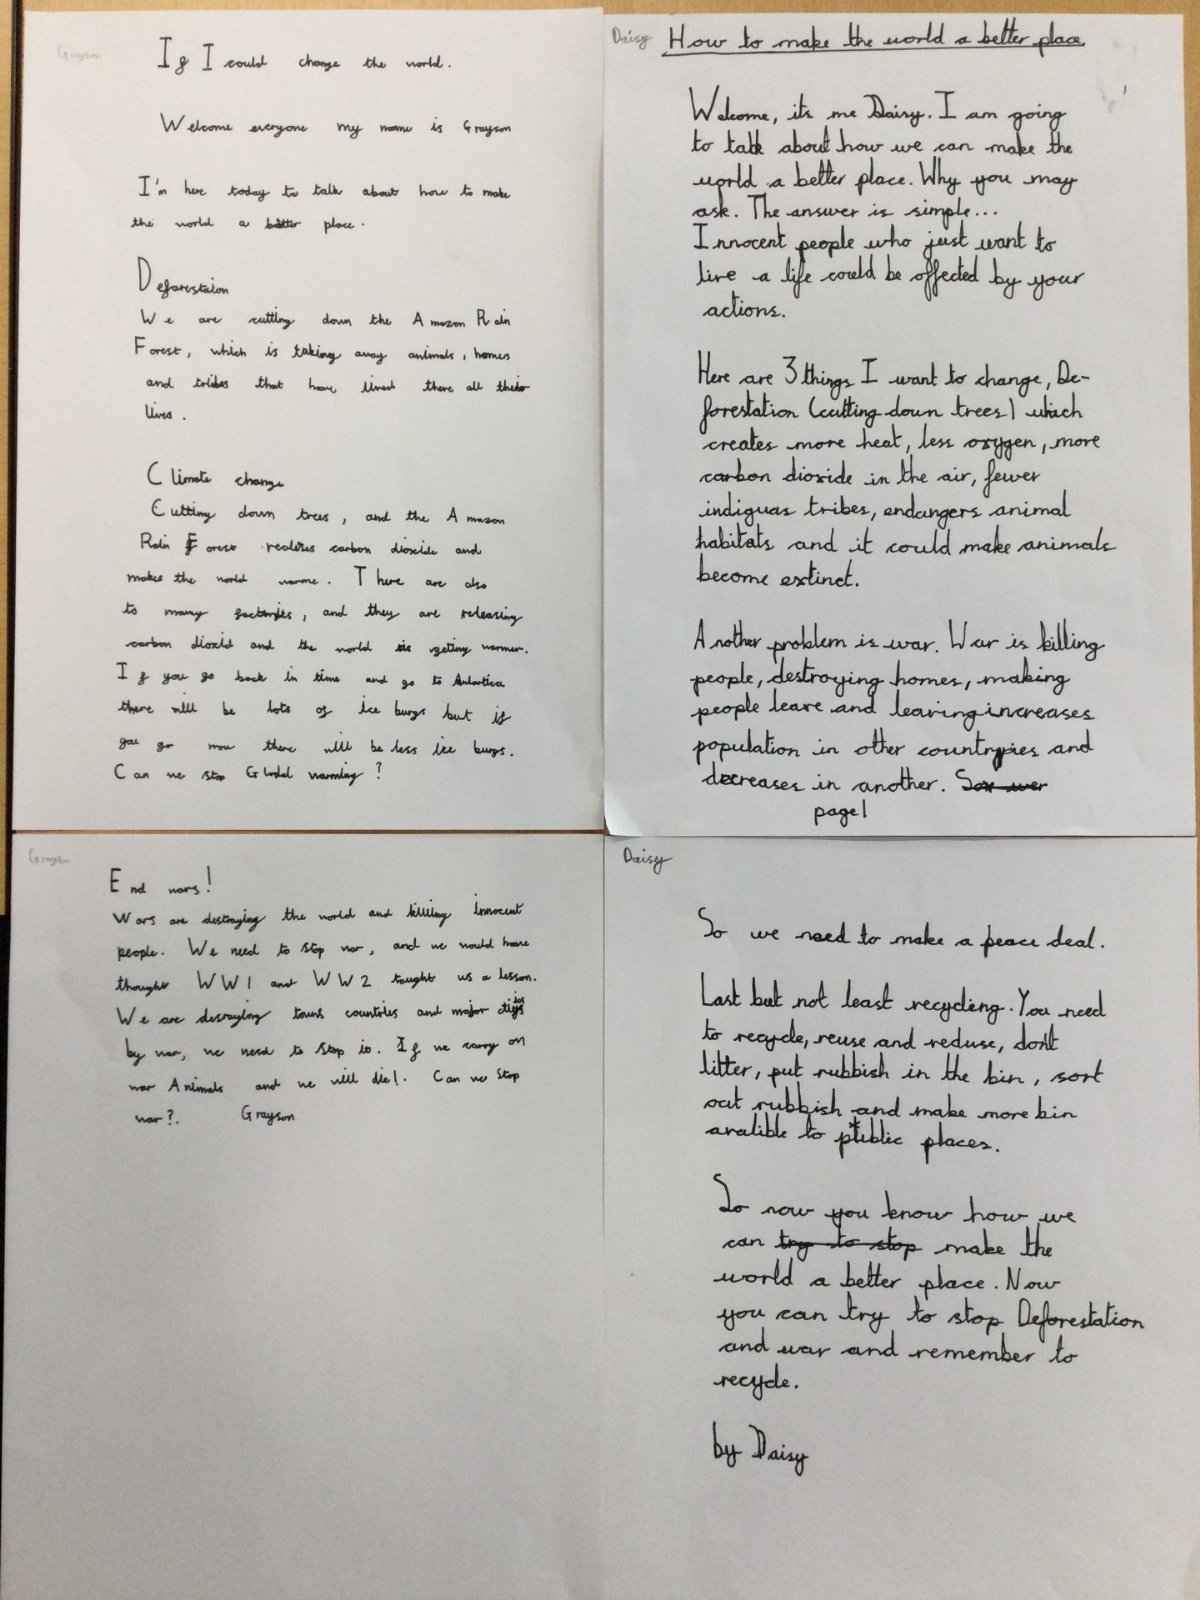 Grayson
If I could change the world.
Welcome everyone my name is Grayson
I'm here today to talk about how to make
the world a better place.
Deforestaion
We are cutting down the Amazon Rain
Forest, which is taking away animals, homes
and tribes that have lived there all their
lives.
Climate change
Cutting down trees, and the Amazon
Rain Forest realises carbon dioxide and
makes the world warme. There are also
to many factories, and they are releasing
carbon dioxid and the world is geting warmer.
If you go back in time and go to Antartica
there will be lots of ice burgs but if
you go now there will be less ice burgs.
Can we stop Global warming?
Grayson
End wars!
Wars are destraying the world and killing innocent
people. We need to stop war, and we would have
thought WW1 and WW2 taught us a lesson.
We are desraying towns countries and major cities
by war, we need to stop it. If we carry on
war Animals and we will die!. Can we stop
war?. Grayson
Daisy
How to make the world a better place
Welcome, its me Daisy. I am going
to talk about how we can make the
world a better place. Why you may
ask. The answer is simple...
Innocent people who just want to
live a life could be affected by your
actions.
Here are 3 things I want to change, De-
forestation (cutting down trees) which
creates more heat, less oxygen, more
carbon dioxide in the air, fewer
indiguas tribes, endangers animal
habitats and it could make animals
become extinct.
Another problem is war. War is killing
people, destroying homes, making
people leave and leaving increases
population in other countries and
decreases in another.
page 1
Daisy
So we need to make a peace deal.
Last but not least recycling. You need
to recycle, reuse and reduse, don't
litter, put rubbish in the bin, sort
out rubbish and make more bin
avalible to public places.
So now you know how we
can try to stop make the
world a better place. Now
you can try to stop Deforestation
and war and remember to
recycle.
by Daisy